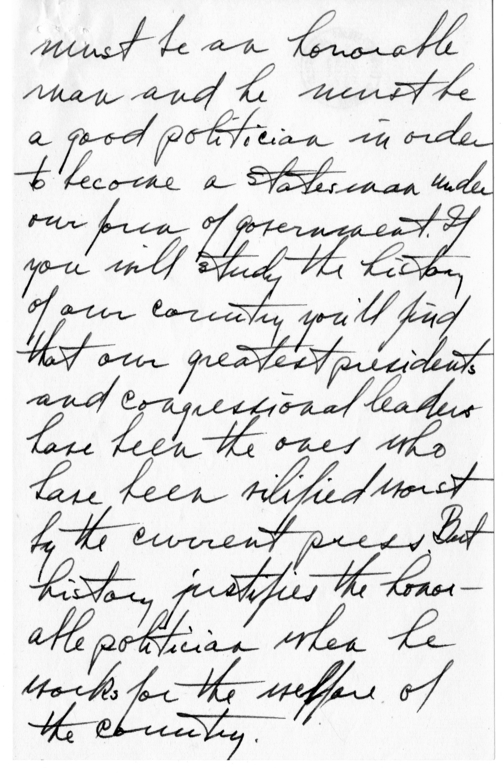 must be an honorable
man and he must be
a good politician in order
to become a statesman under
our form of government. If
you will study the history
of our country you'll find
that our greatest presidents
and congressional leaders
have been the ones who
have been vilified worst
by the current press. But
history justifies the honor-
able politician when he
works for the welfare of
the country.